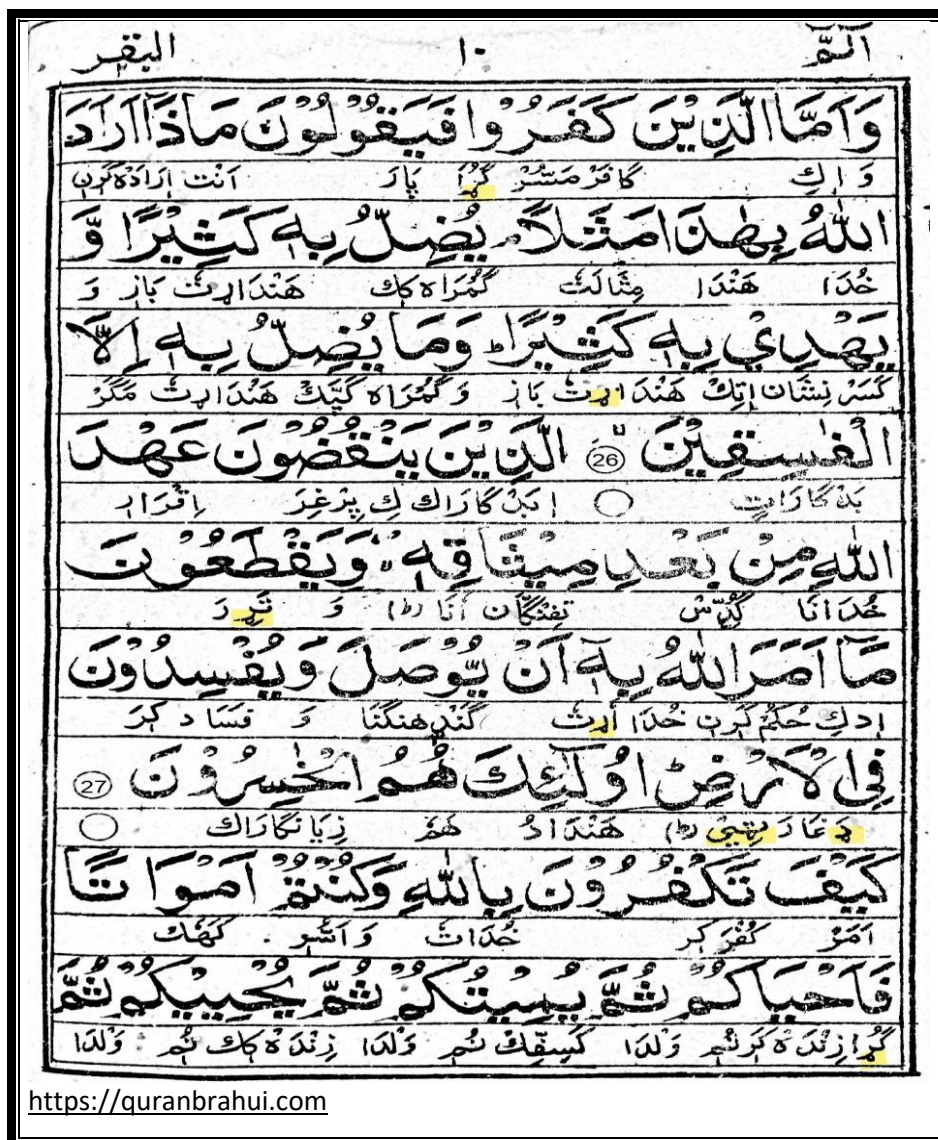 الٓمّ ١٠ البقر
وَاَمَّا الَّذِيْنَ كَفَرُوْا فَيَقُوْلُوْنَ مَاذَآ اَرَادَ
وَ اِكِ كَافَرْ مَسُّرْ گُڑَا پَارَ اَنْت اِرَادَہ كَرٖن
اللّٰهُ بِهٰذَا مَثَلًا ۘ يُضِلُّ بِهٖ كَثِيْرًا وَّ
خُدَا هَنْدَا مِثَالَتْ گُمْرَاہ كِك هَنْدَارٖتْ بَازٖ وَ
يَهْدِيْ بِهٖ كَثِيْرًا ؕ وَمَا يُضِلُّ بِهٖٓ اِلَّا
كَسَرْ نِشَان اِتِكْ هَنْدَارٖتْ بَازٖ وَ گُمْرَاہ كَپَّكْ هَنْدَارٖتْ مَگَرْ
الْفٰسِقِيْنَ ۙ 26 الَّذِيْنَ يَنْقُضُوْنَ عَهْدَ
بَدْ كَارَاتٖ اِ بَدْ كَارَاك كِ پِرْغِرَ اِقْرَارٖ
اللّٰهِ مِنْۢ بَعْدِ مِيْثَاقِهٖ ۪ وَيَقْطَعُوْنَ
خُدَانَا گُڈّسْ تَفِنْگَان اَنَا (ط) وَ تَڑٖرَ
مَآ اَمَرَ اللّٰهُ بِهٖٓ اَنْ يُّوْصَلَ وَيُفْسِدُوْنَ
اِدكِ حُكَمْ كَرٖن خُدَا اَرٖتْ گَنْڈهِنْگنَا وَ فَسَاد كٖرَ
فِى الْاَرْضِ ؕ اُولٰٓئِكَ هُمُ الْخٰسِرُوْنَ 27
ڈَغَارَ ٹِیْ (ط) هَنْدَادُ هَمْ زِيَانكَارَاك
كَيْفَ تَكْفُرُوْنَ بِاللّٰهِ وَكُنْتُمْ اَمْوَاتًا
اَمَرْ كُفْرَ كٖرٖ خُدَاتْ وَ اَسُّرٖ كَهُك
فَاَحْيَاكُمْ ۚ ثُمَّ يُمِيْتُكُمْ ثُمَّ يُحْيِيْكُمْ ثُمَّ
گُڑَا زِنْدَہ كَرٖ نُمٖ وَلْدَا كَسِفِّكْ نُمٖ وَلْدَا زِنْدَہ كِك نُمٖ وَلْدَا
https://quranbrahui.com